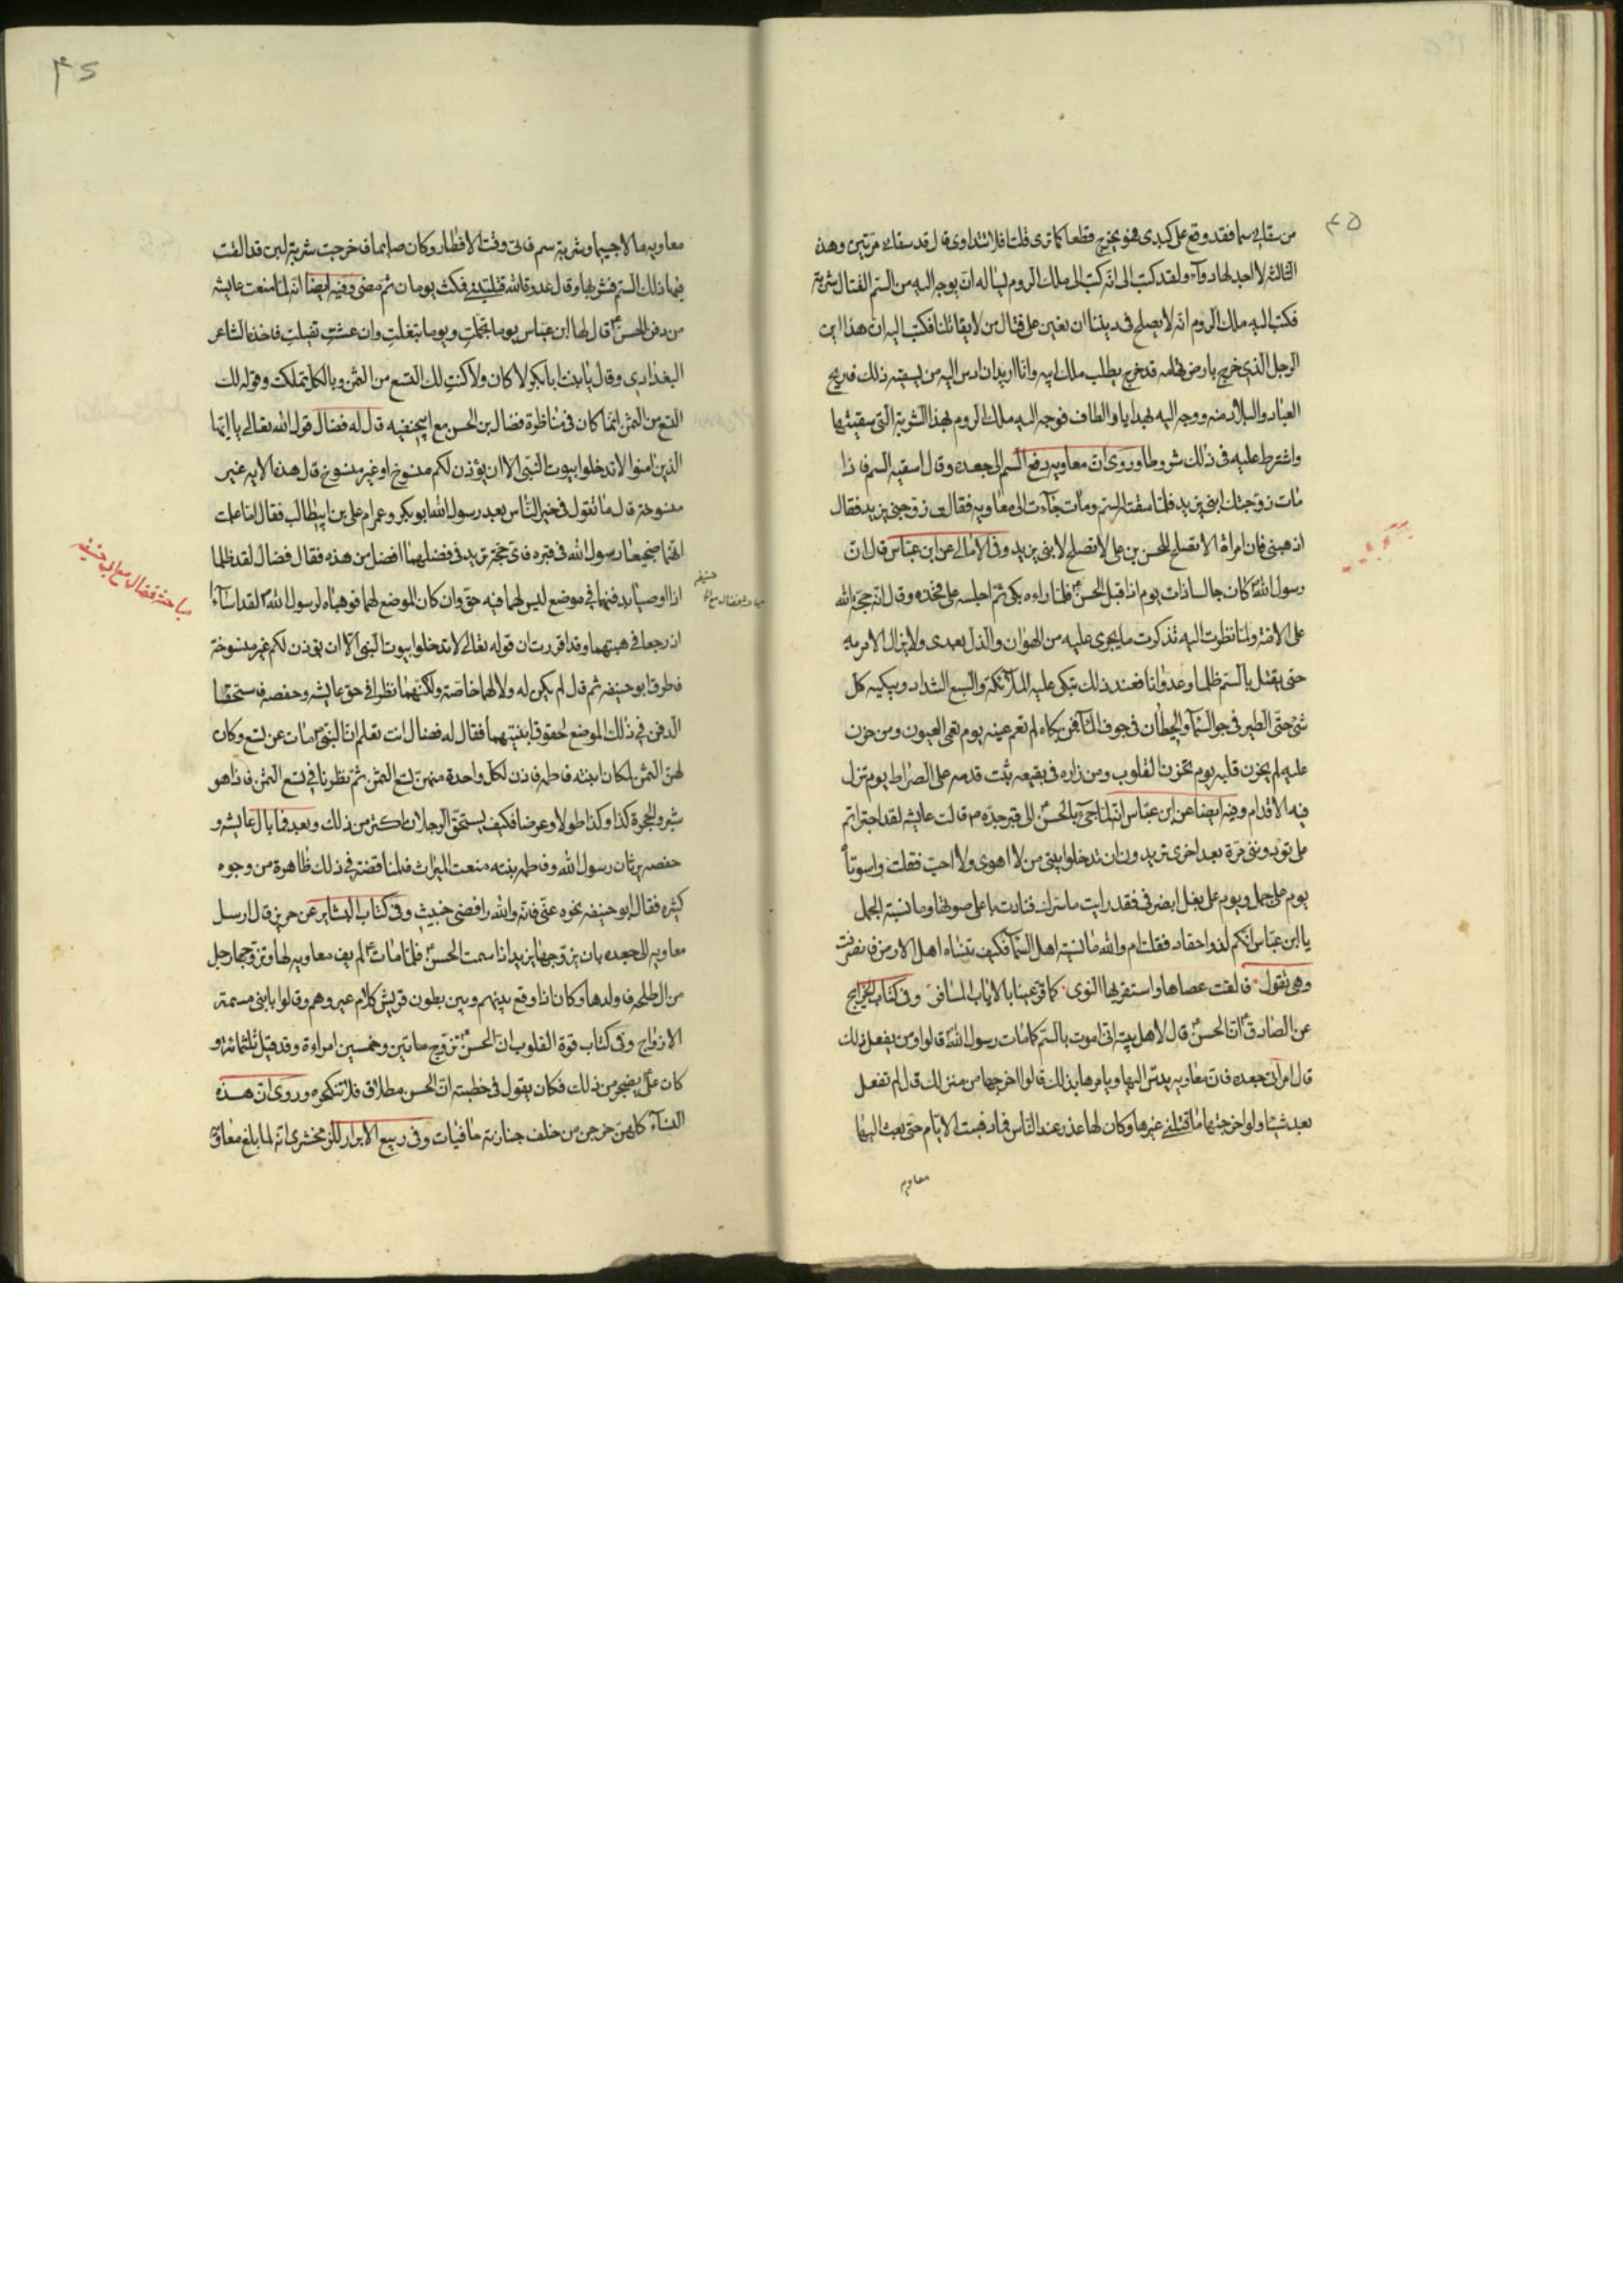 ٤٥
من سقاني سما فقد وقع على كبدى فهو يخرج قطعا كما ترى قلت افلا تتداوى قال قد سقاني مرتين وهذه
الثالثه لا اجد لها دوآء ولقد كتب الى انه كتب الى ملك الروم يساله ان يوجه اليه من السم القتال شربة
فكتب اليه ملك الروم انه لا يصلح فى ديننا ان نعين على قتال من لا يقاتلنا فكتب اليه ان هذا ابن
الرجل الذى خرج بارض تهامه قد خرج يطلب ملك ابيه وانا اريد ان ادس اليه من يسقيه ذلك فاريح
العباد والبلاد منه ووجه اليه بهدايا والطاف فوجه اليه ملك الروم بهذا الشربة التى سقيتها
واشترط عليه فى ذلك شروطا وروى ان معاويه دفع السم الى جعده وقال اسقيه السم فاذا
مات زوجتك ابنى يزيد فلما سقته السم ومات جاءت الى معاويه فقالت زوجنى يزيد فقال
اذهبى فان امراة لا تصلح للحسن بن على لا تصلح لابنى يزيد وفى الامالى عن ابن عباس قال ان
رسول الله كان جالسا ذات يوم اذا قبل الحسن فلما راه بكى ثم اجلسه على فخذه وقال انه حجة الله
على الامة ولما نظرت اليه تذكرت ما يجرى عليه من الهوان والذل بعدى ولا يزال الامر به
حتى يقتل بالسم ظلما وعدوانا فعند ذلك تبكى عليه الملآئكة والسبع الشداد ويبكيه كل
شئ حتى الطير فى جو السمآء والحيطان فى جوف المآء فمن بكاه لم تعم عينه يوم تعمى العيون ومن حزن
عليه لم يحزن قلبه يوم تحزن القلوب ومن زاره فى بقيعه ثبت قدمه على الصراط يوم تزل
فيه الاقدام وفيه ايضا عن ابن عباس انه لما جئ بالحسن الى قبر جده ص قالت عايشه لقد اجتراتم
على تؤذوننى مرة بعد اخرى تريدون ان تدخلوا بيتى من لا اهوى ولا احب فقلت واسوتا
يوم على جمل ويوم على بغل فنادت باعلى صوتها وما نسيتم الجمل
يا ابن عباس انكم لذوا احقاد فقلت ام والله ما نسيته اهل السمآء فكيف تنساه اهل الارض فانصرفت
وهى تقول فالقت عصاها واستقر بها النوى كما قر عينا بالاياب المسافر وفى كتاب الخرايج
عن الصادق ان الحسن قال لاهل بيته انى اموت بالسم كما مات رسول الله قالوا ومن يفعل ذلك
قال امراتى جعده فان معاويه يدس اليها ويامرها بذلك قالوا اخرجها من منزلك قال لم تفعل
بعد شيئا ولو اخرجتها ما قتلنى غيرها وكان لها عذر عند الناس فما ذهبت الايام حتى بعث اليها
معاويه
٤٦
معاويه مالا جسيما وشربة سم فاتى وقت الافطار وكان صايما فاخرجت شربة لبن قد القت
فيها ذلك السم فشربها وقال عدوة الله قتلتنى فمكث يومان ثم مضى وفيه ايضا انه لما منعت عايشه
من دفن الحسن قال لها ابن عباس يوما تجملت ويوما تبغلت وان عشت تفيلت فاخذه الشاعر
البغدادى وقال يا بنت ابا بكر لا كان ولا كنت لك التسع من الثمن وبالكل تملكت وقوله لك
التسع من الثمن انما كان فى مناظرة فضال بن الحسن مع ابيحنيفه قال له فضال قول الله تعالى يا ايها
الذين امنوا لا تدخلوا بيوت النبى الا ان يؤذن لكم منسوخ او غير منسوخ قال هذه الايه غير
منسوخة قال ما تقول فى خير الناس بعد رسول الله ابو بكر وعمر ام على بن ابيطالب فقال اما علمت
انهما ضجيعا رسول الله فى قبره فاى حجة تريد فى فضلهما افضل من هذه فقال فضال لقد ظلما
اذا اوصيا بدفنهما فى موضع ليس لهما فيه حق وان كان الموضع لهما فوهباه لرسول الله لقد اسآءا
اذ رجعا فى هبتهما وقد اقررت ان قوله تعالى لا تدخلوا بيوت النبى الا ان يؤذن لكم غير منسوخة
فاطرق ابو حنيفه ثم قال لم يكن له ولا لهما خاصة ولكنهما نظرا فى حق عايشه وحفصه فاستحقا
الدفن فى ذلك الموضع لحقوق ابنتيهما فقال له فضال انت تعلم ان النبى مات عن تسع وكان
لهن الثمن لمكان ابنته فاطمه فاذن لكل واحدة منهن تسع الثمن ثم نظرنا فى تسع الثمن فاذا هو
شبر والحجرة كذا وكذا طولا وعرضا فكيف يستحق الرجلان اكثر من ذلك وبعد فما بال عايشه و
حفصه يرثان رسول الله وفاطمه بنته منعت الميراث فالمناقضة فى ذلك ظاهرة من وجوه
كثيره فقال ابو حنيفه نحوه عنى فانه والله رافضى خبيث وفى كتاب البشاير عن حريز قال ارسل
معاويه الى جعده بان يزوجها يزيد اذا سمت الحسن فلما مات لم يف معاويه لها وتزوجها رجل
من ال طلحه فاولدها وكان اذا وقع بينهم وبين بطون قريش كلام عيروهم وقالوا يا بنى مسمة
الازواج وفى كتاب قوة القلوب ان الحسن تزوج ماتين وخمسين امراءة وقد قيل ثلثمائة و
كان على يضجر من ذلك فكان يقول فى خطبته ان الحسن مطلاق فلا تنكحوه وروى ان هذه
النسآء كلهن خرجن من خلف جنازته حافيات وفى ربيع الابرار للزمخشرى انه لما بلغ معاوية
مباحثه فضال مع ابى حنيفه
مباحثه فضال مع ابى حنيفه